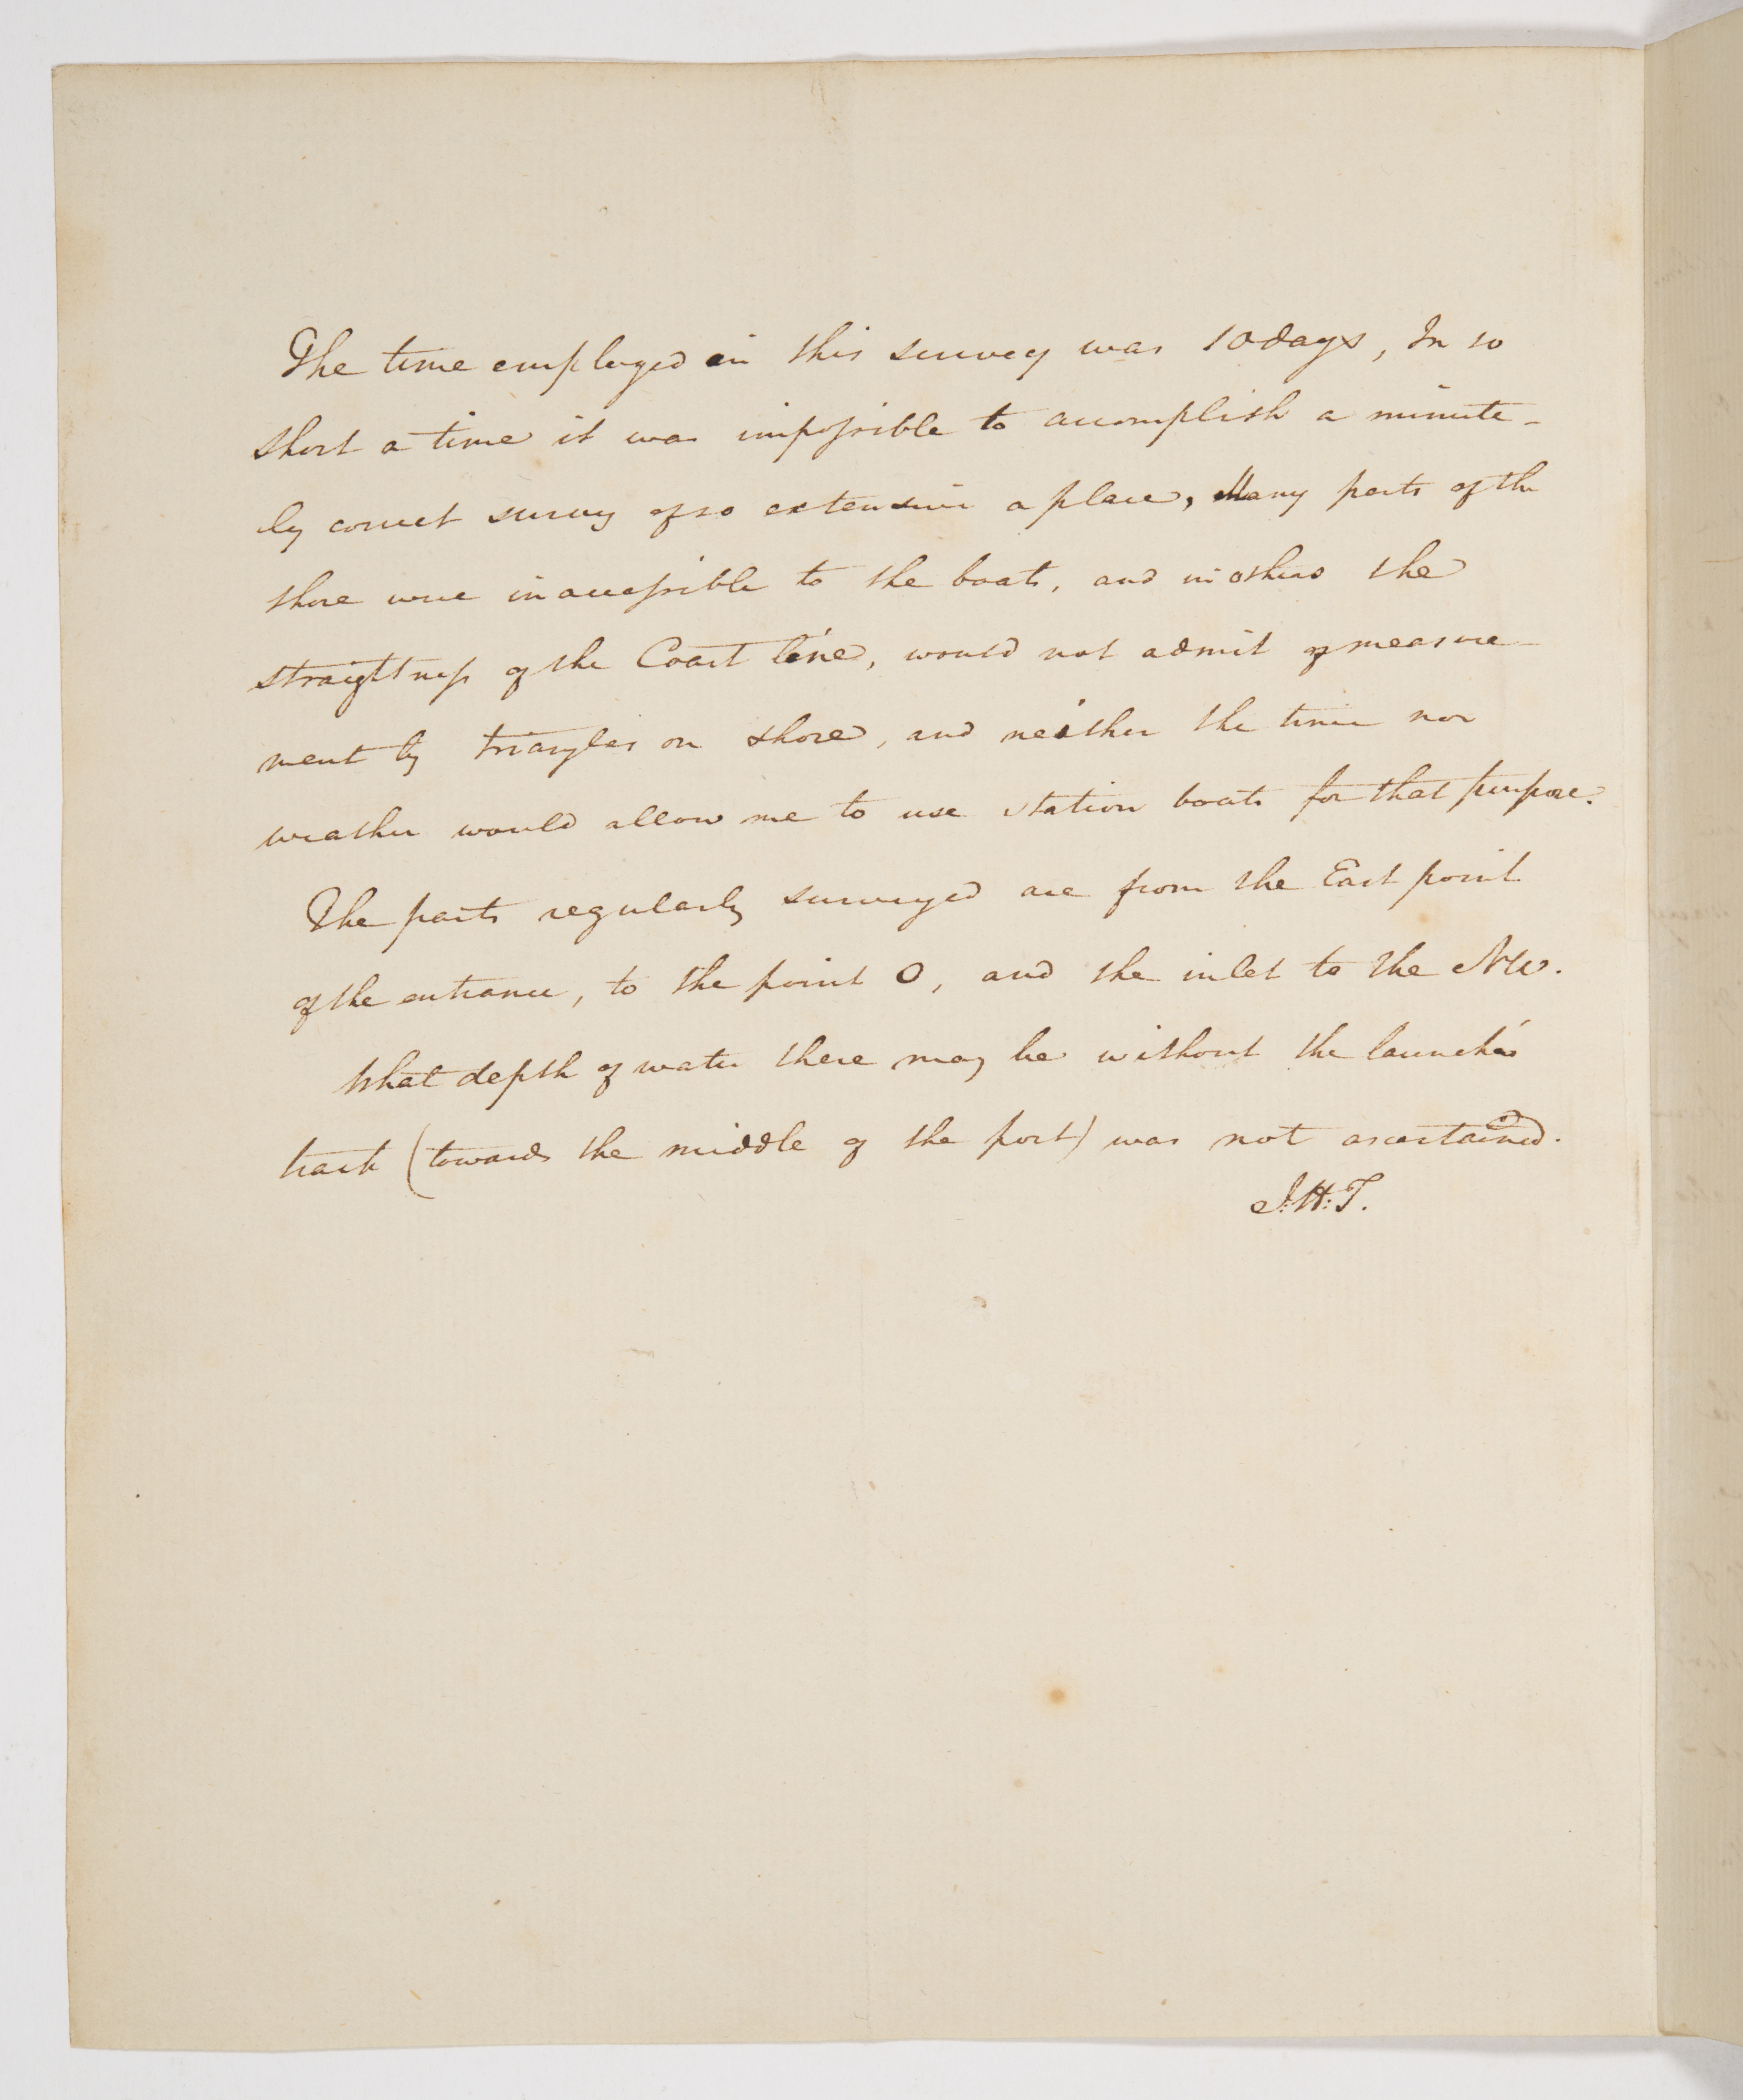 The time employed in this survey was 10 days, In so
short a time it was impossible to accomplish a minute-
ly correct survey of so extensive a place, Many parts of the
shore were inaccessible to the boats, and in others the
straightness of the Coast line, would not admit of measure-
ment by triangles on shore, and neither the time nor
weather would allow me to use station boats for that purpose.
The parts regularly surveyed are from the East point
of the entrance, to the point O, and the inlet to the NW.
What depth of water there may be without the launch's
track (towards the middle of the port) was not ascertained.
J:H:T.